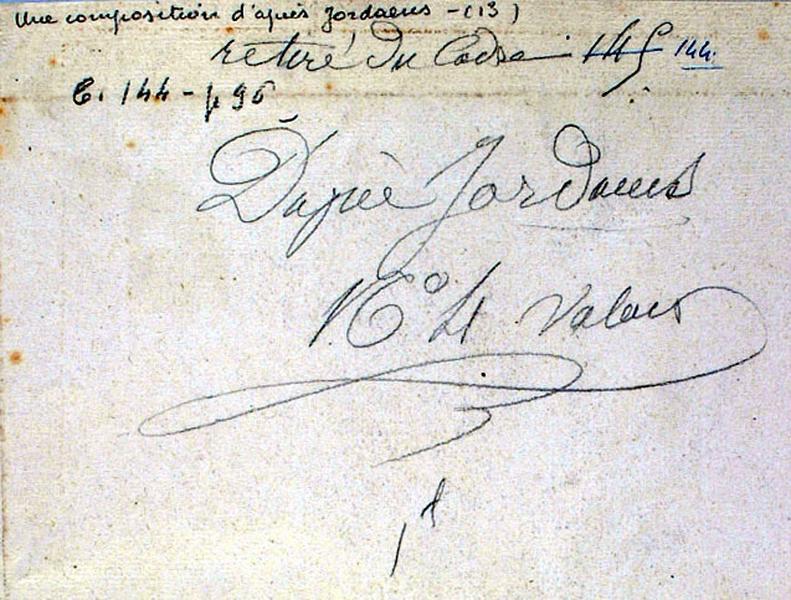 Une composition d'après Jordaens - (13)
retiré du Cadre 145 144.
C. 144 - p 96
D'apré Jordaens
N° 4 Valeur
1 f